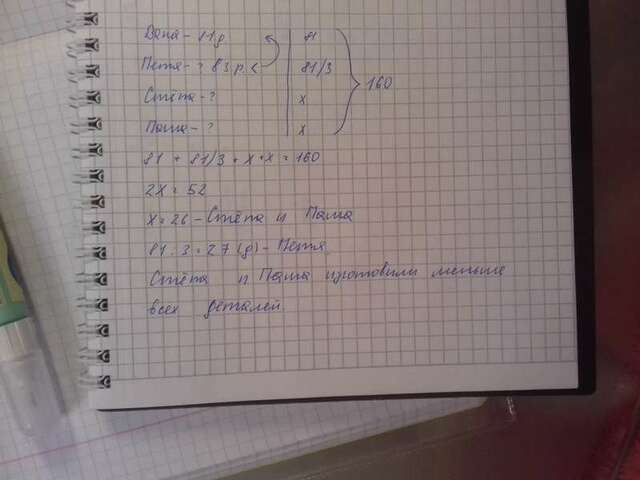 Ваня - 81 р. 81
Петя - ? в 3 р. < 81/3
Стёпа - ? x
Паша - ? x
160
81 + 81/3 + x + x = 160
2x = 52
x = 26 - Стёпа и Паша
81 : 3 = 27 (р) - Петя
Стёпа и Паша изготовили меньше
всех деталей